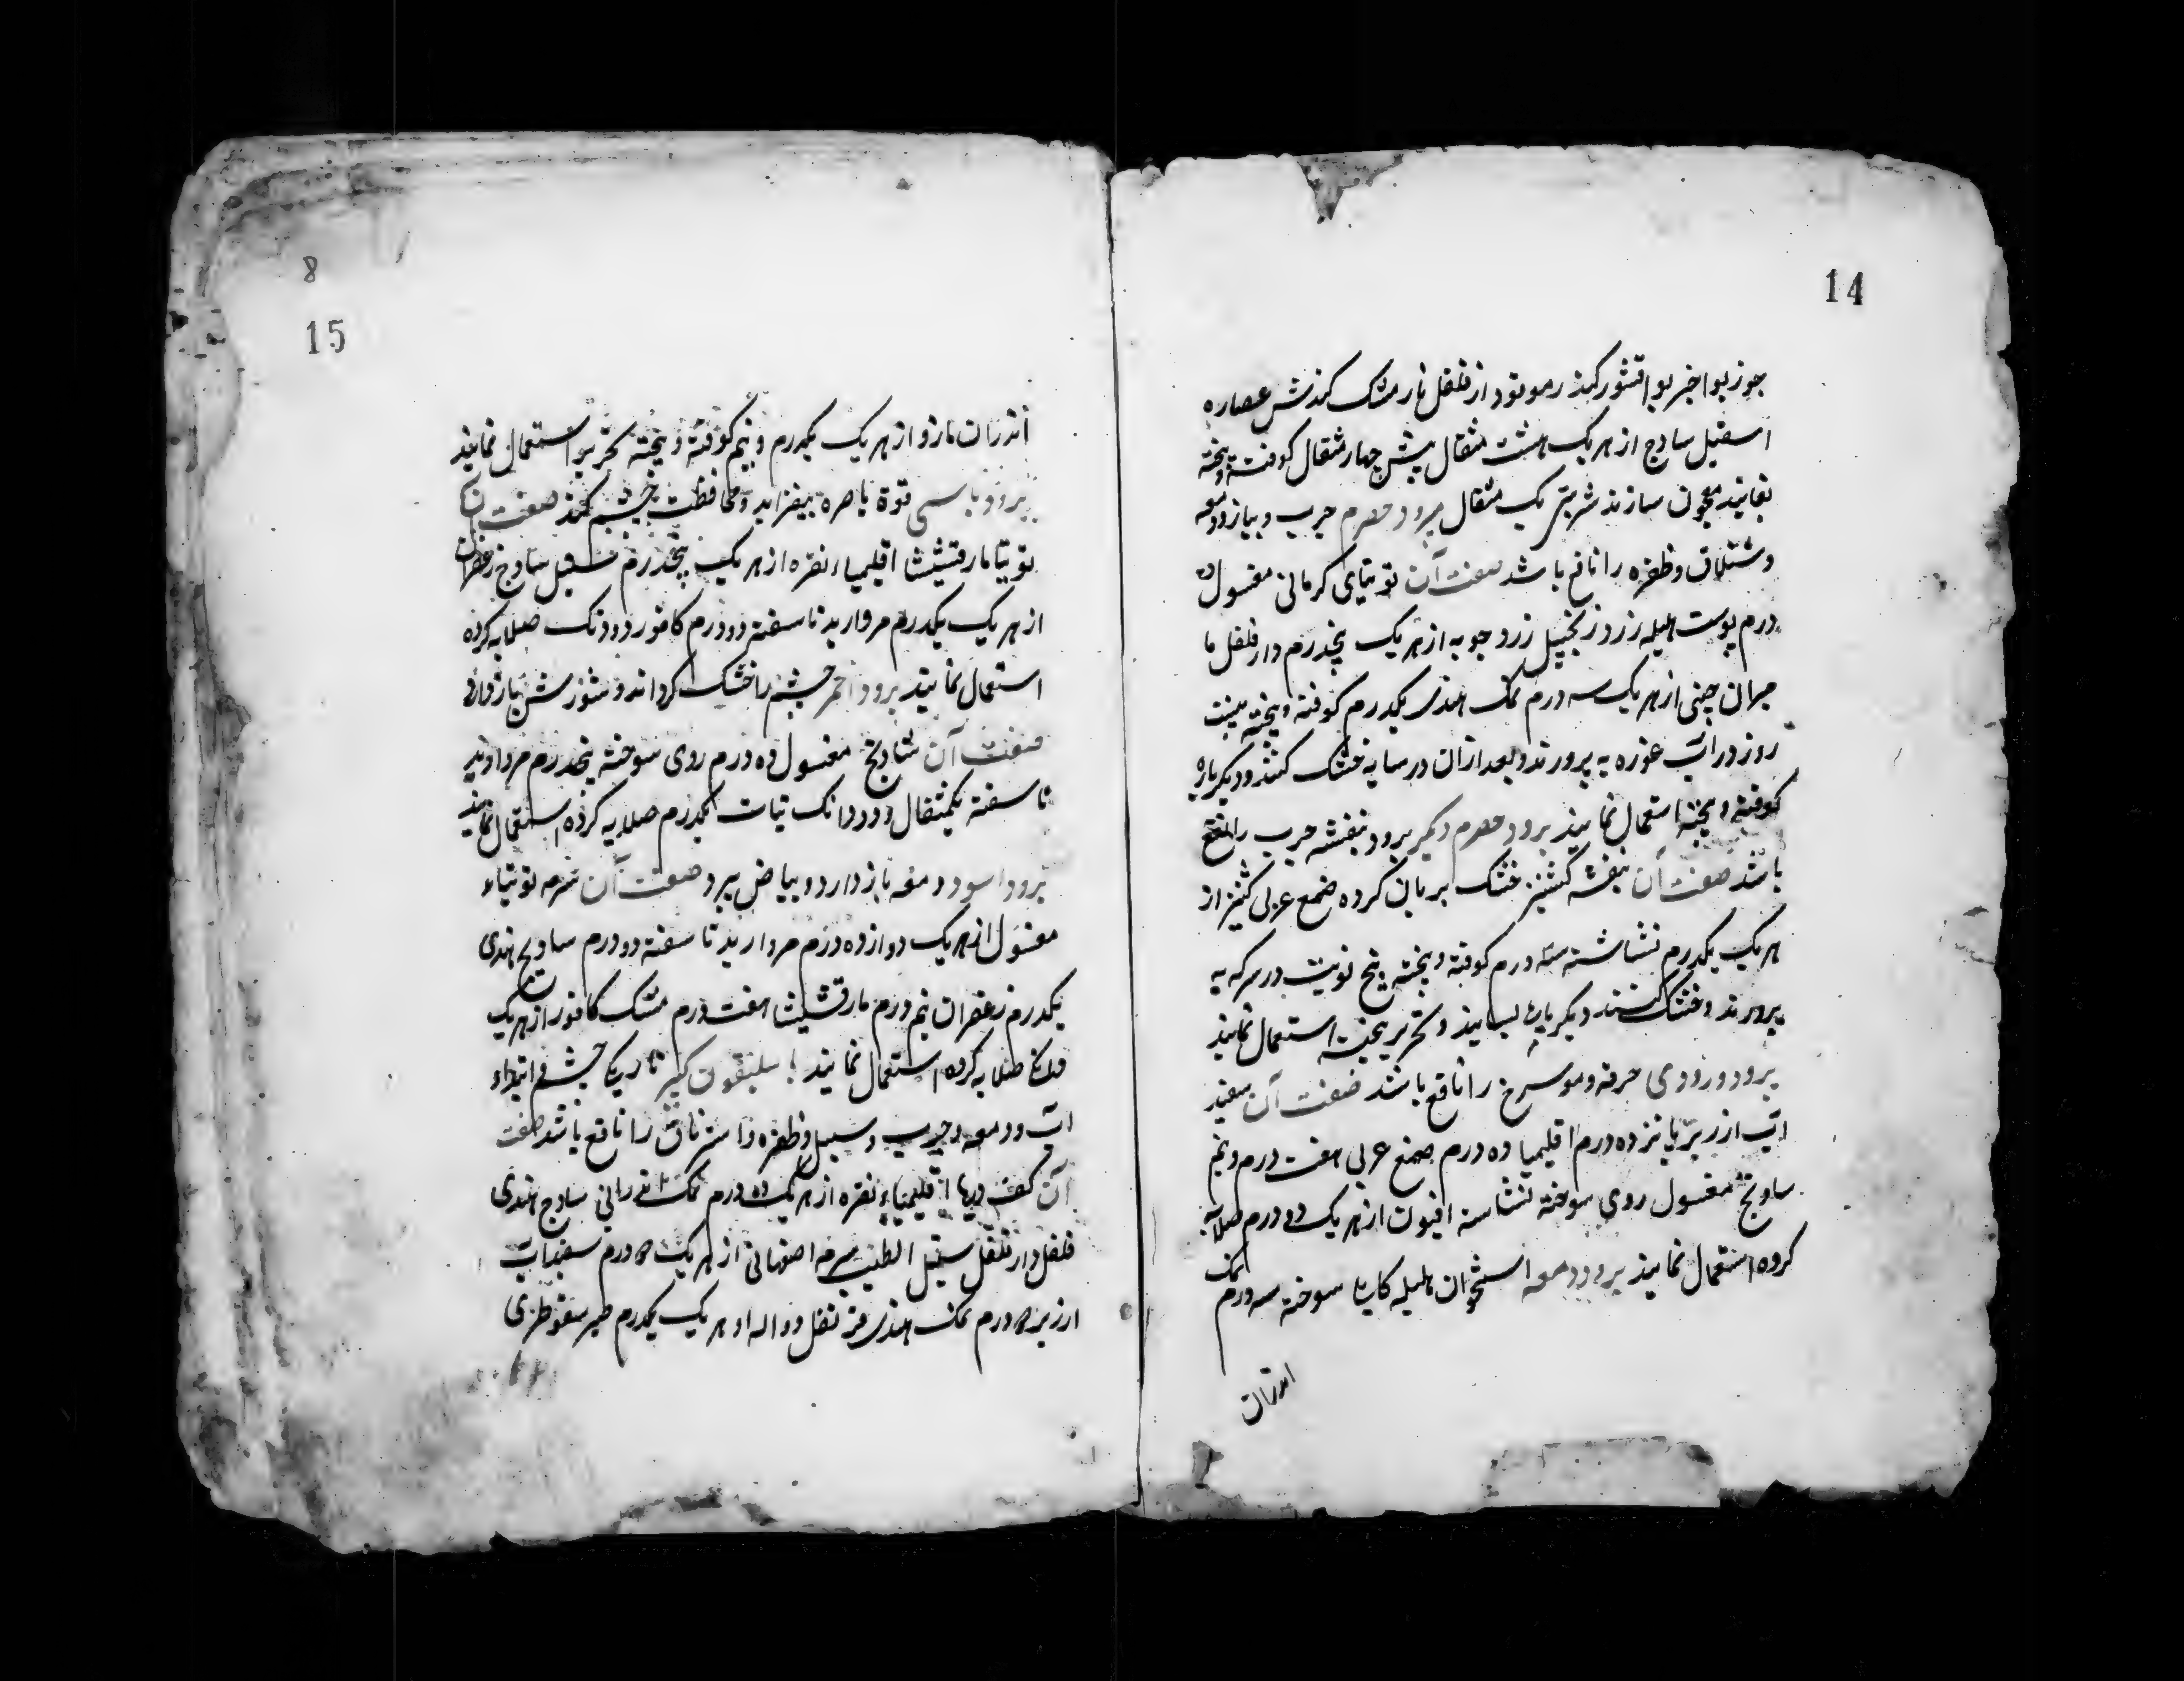 14
جوز بوا خیر بوا قشور کندر رمو نود از فلفل نار مشک کندش عصاره
اسقیل سادج از هر یک هشت مثقال بیش چهار مثقال کوفته و بیخته
معجون سازند شربتی یک مثقال برود حصرم جرب و بیاز و دمعه
و شتلاق و ظفره را نافع باشد صفت آن توتیای کرمانی مغسول ده
درم پوست هلیله زرد زنجبیل زرد جوبه از هر یک پنجدرم دار فلفل ما
میران چینی از هر یک سه درم نمک هندی یکدرم کوفته و بیخته بیست
روز در آب غوره به پرورند و بعد ازان در سایه خشک کنند و دیکر باره
کوفته و بیخته استعمال نمایند برود حصرم دیکر برود بنفشه جرب را نافع
باشد صفت آن بنفشه کشنیز خشک بریان کرده صمغ عربی کثیرا از
هر یک یکدرم نشاشته سه درم کوفته و بیخته پنج نوبت در سرکه به
پرورند و خشک کنند دیکر باره بسایند و بحریر بیخته استعمال نمایند
برود وردی حرقه و موسرخ را نافع باشد صفت آن سفید
آب ارزیز پانزده درم اقلیمیا ده درم صمغ عربی هفت درم و نیم
سادنج مغسول روی سوخته نشاسته افیون از هر یک دو درم صلایه
کرده استعمال نمایند برود دمعه استخوان هلیله کابلی سوخته سه درم نمک
اندران
8
15
اندران مازو از هر یک یکدرم و نیم کوفته و بیخته بحریر استعمال نمایند
برود باسمی قوة باصره بیفزاید و محافظت چشم کند صفت آن
توتیا مارقشیشا اقلیمیاء نقره از هر یک پنجدرم سنبل سادج زعفران
از هر یک یکدرم مروارید ناسفته دو درم کافور دو دنک صلایه کرده
استعمال نمایند برود احمر چشم را خشک کرداند و سوزش باز دارد
صفت آن شادنج مغسول ده درم روی سوخته پنجدرم مروارید
ناسفته یکمثقال و دو دانک نبات یکدرم صلایه کرده استعمال نمایند
برود اسود دمعه باز دارد و بیاض ببرد صفت آن سرمه توتیاء
مغسول از هر یک دوازده درم مروارید ناسفته دو درم سادج هندی
یکدرم زعفران نیم درم مارقشیشا هفت درم مشک کافور از هر یک
دانکی صلایه کرده استعمال نمایند باسلیقون کبیر تاریکی چشم و ابتداء
آب و دمعه و جرب و سبل و ظفره و استرناق را نافع باشد صفت
آن کف دریا اقلیمیاء نقره از هر یک ده درم نمک اندرانی سادج هندی
فلفل دار فلفل سنبل الطیب سرمه اصفهانی از هر یک درم سفیداب
ارزیز درم نمک هندی قرنفل دواله از هر یک یکدرم صبر سقوطری